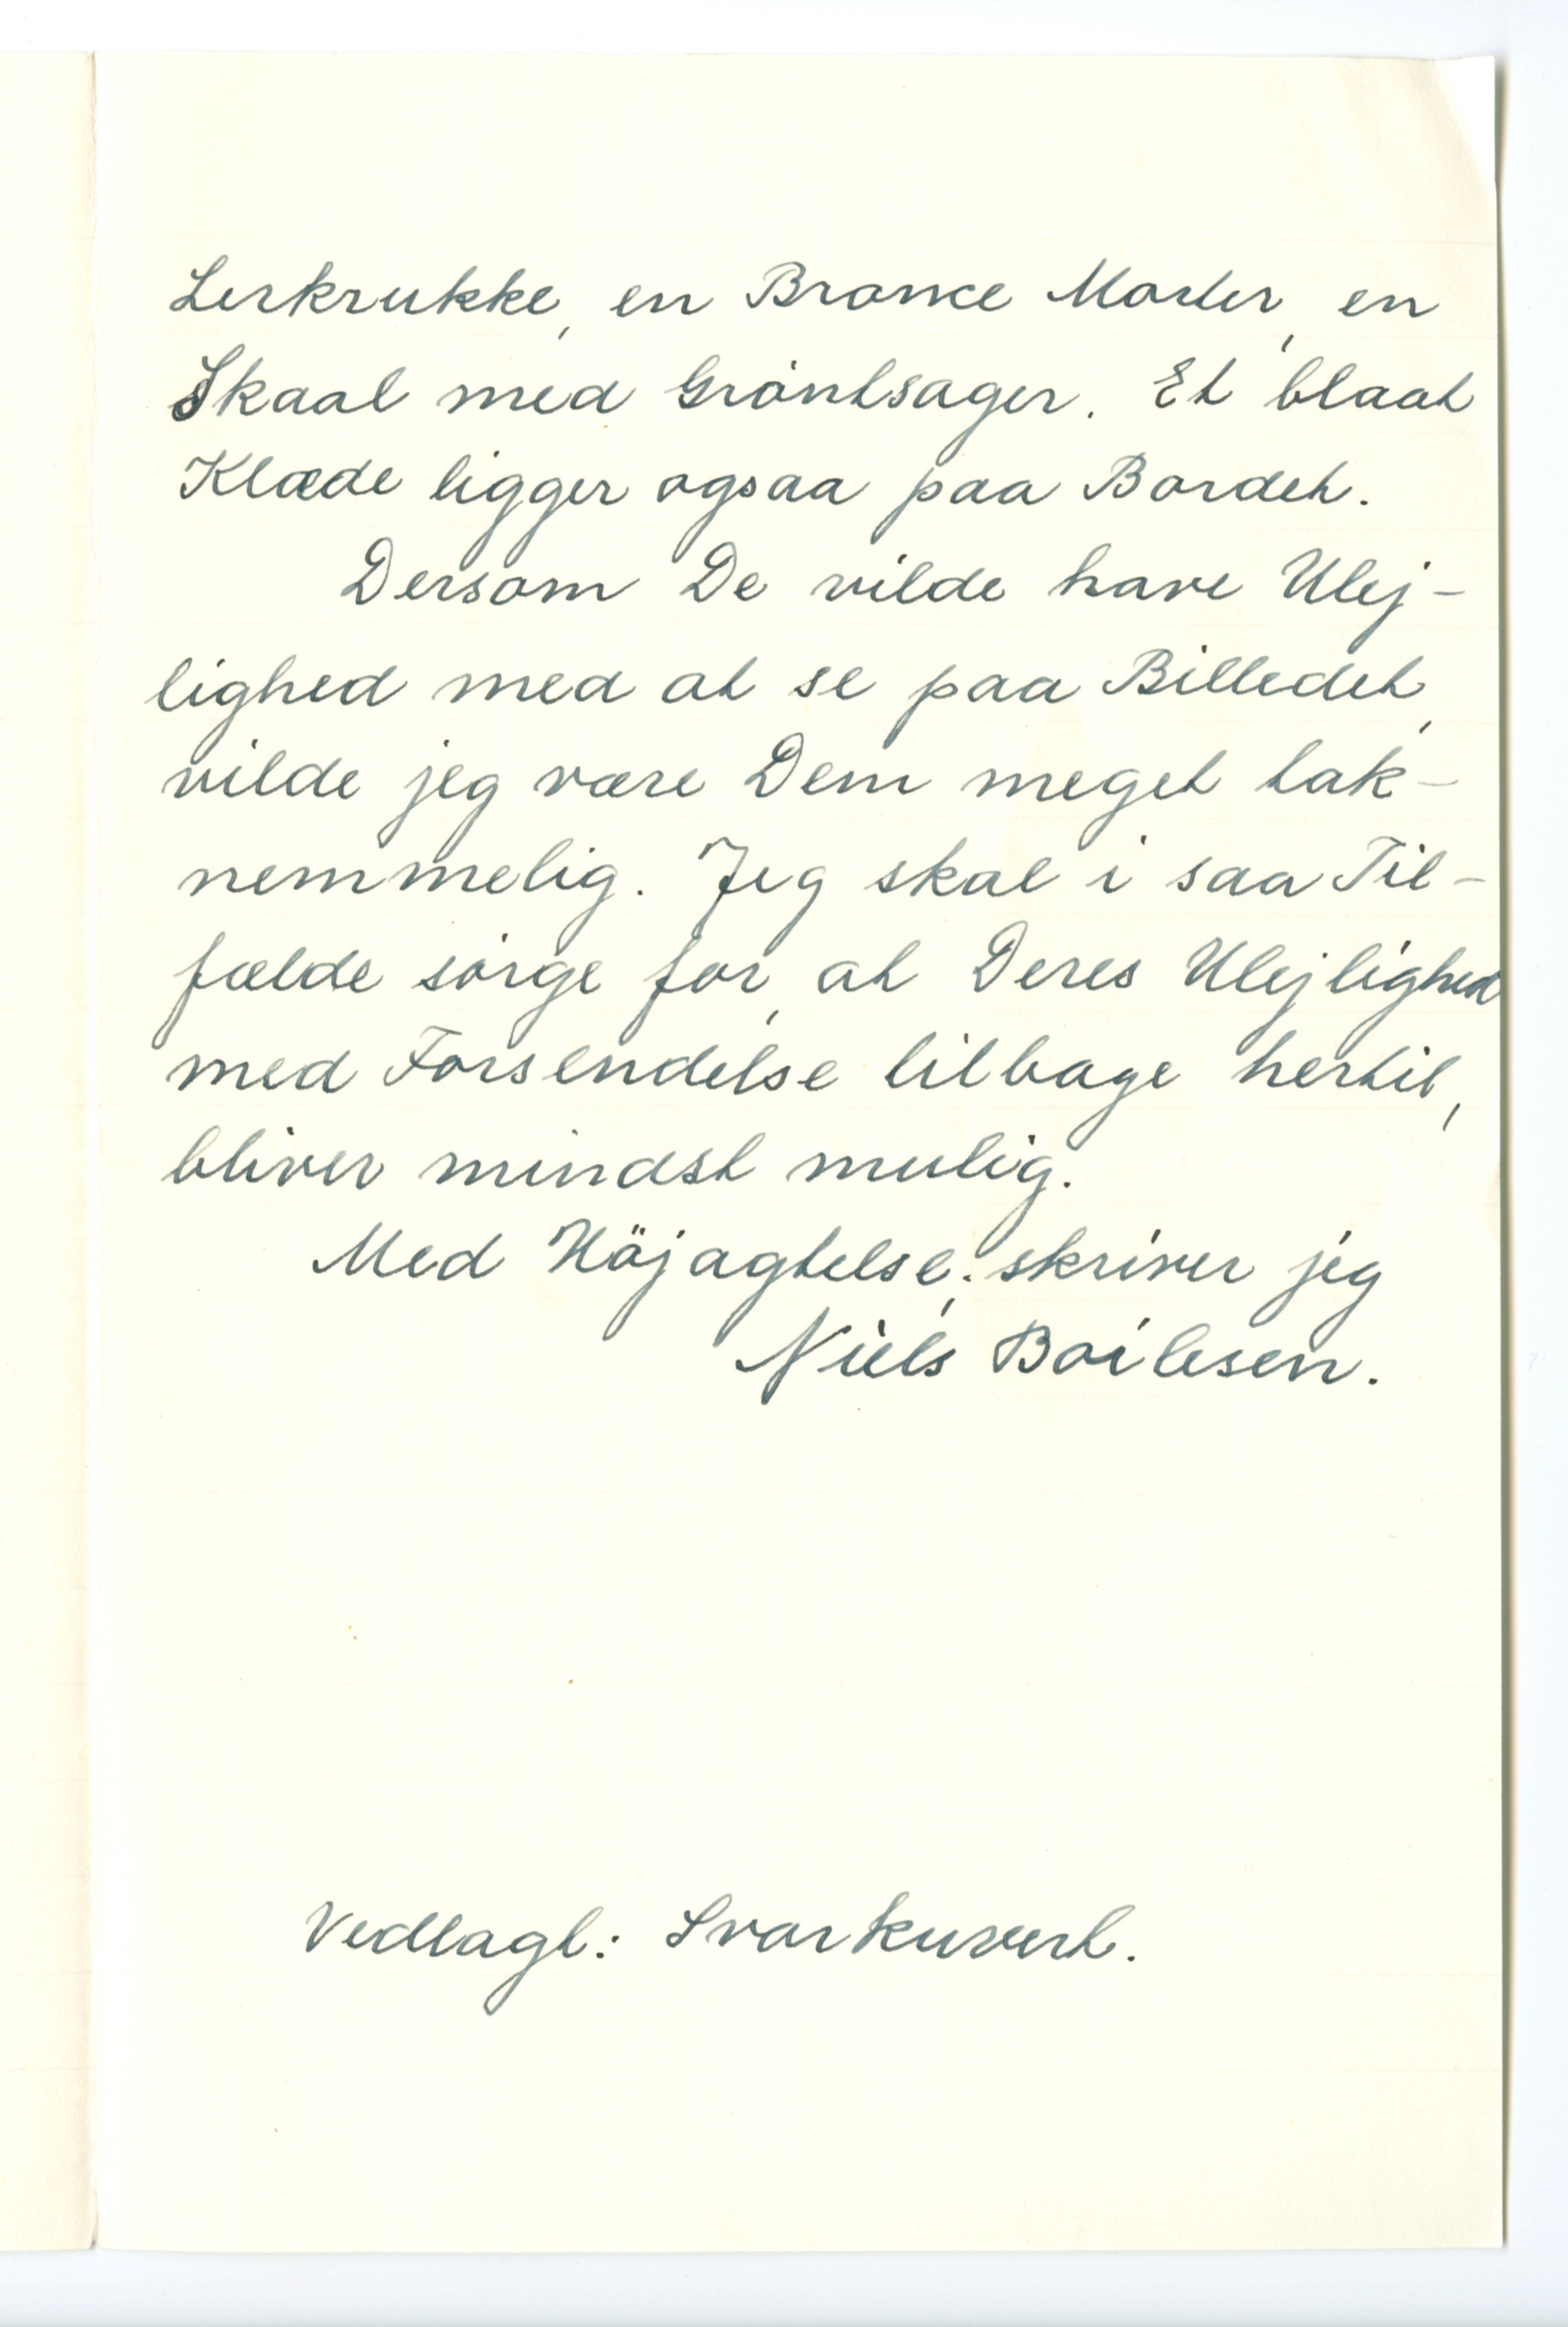 Lerkrukke, en Bronce Morter, en
Skaal med Gröntsager. Et blaat
Klæde ligger ogsaa paa Bordet.
Dersom De vilde have Ulej-
lighed med at se paa Billedet,
vilde jeg være Dem meget tak-
nemmelig. Jeg skal i saa Til-
fælde sörge for, at Deres Ulejlighed
med Forsendelse tilbage hertil,
bliver mindst mulig.
Med Höjagtelse, skriver jeg
Niels Boilesen.
Vedlagt: Svarkuvert.